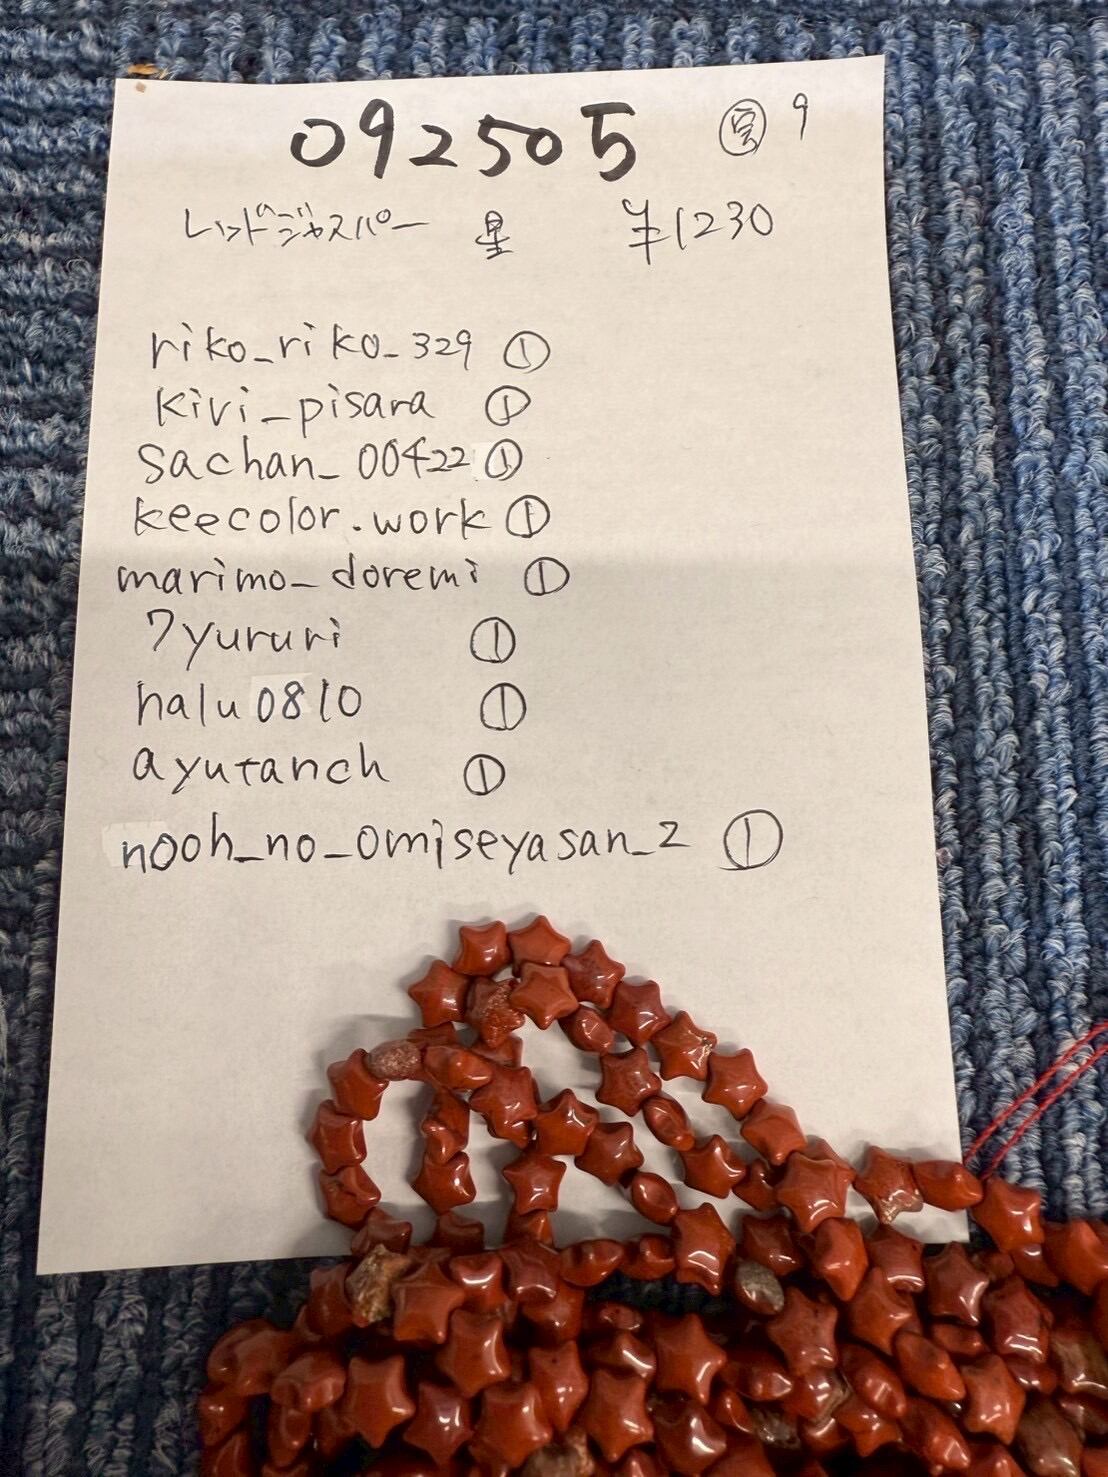 092505 9
レッドジャスパー 星 ¥1230
riko_riko_329 ①
kivi_pisara ①
sachan_00422 ①
keecolor.work ①
marimo_doremi ①
7yururi ①
halu0810 ①
ayutanch ①
nooh_no_omiseyasan_2 ①